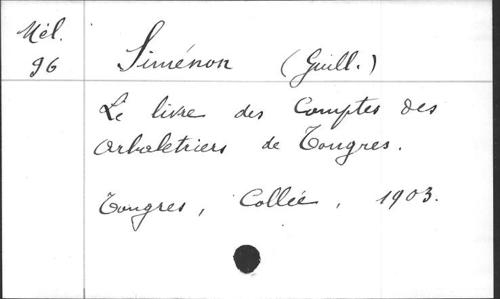 Mél.
96
Siménon (Guill.)
Le livre des Comptes des
Arbaletriers de Tongres.
Tongres, Collée, 1903.